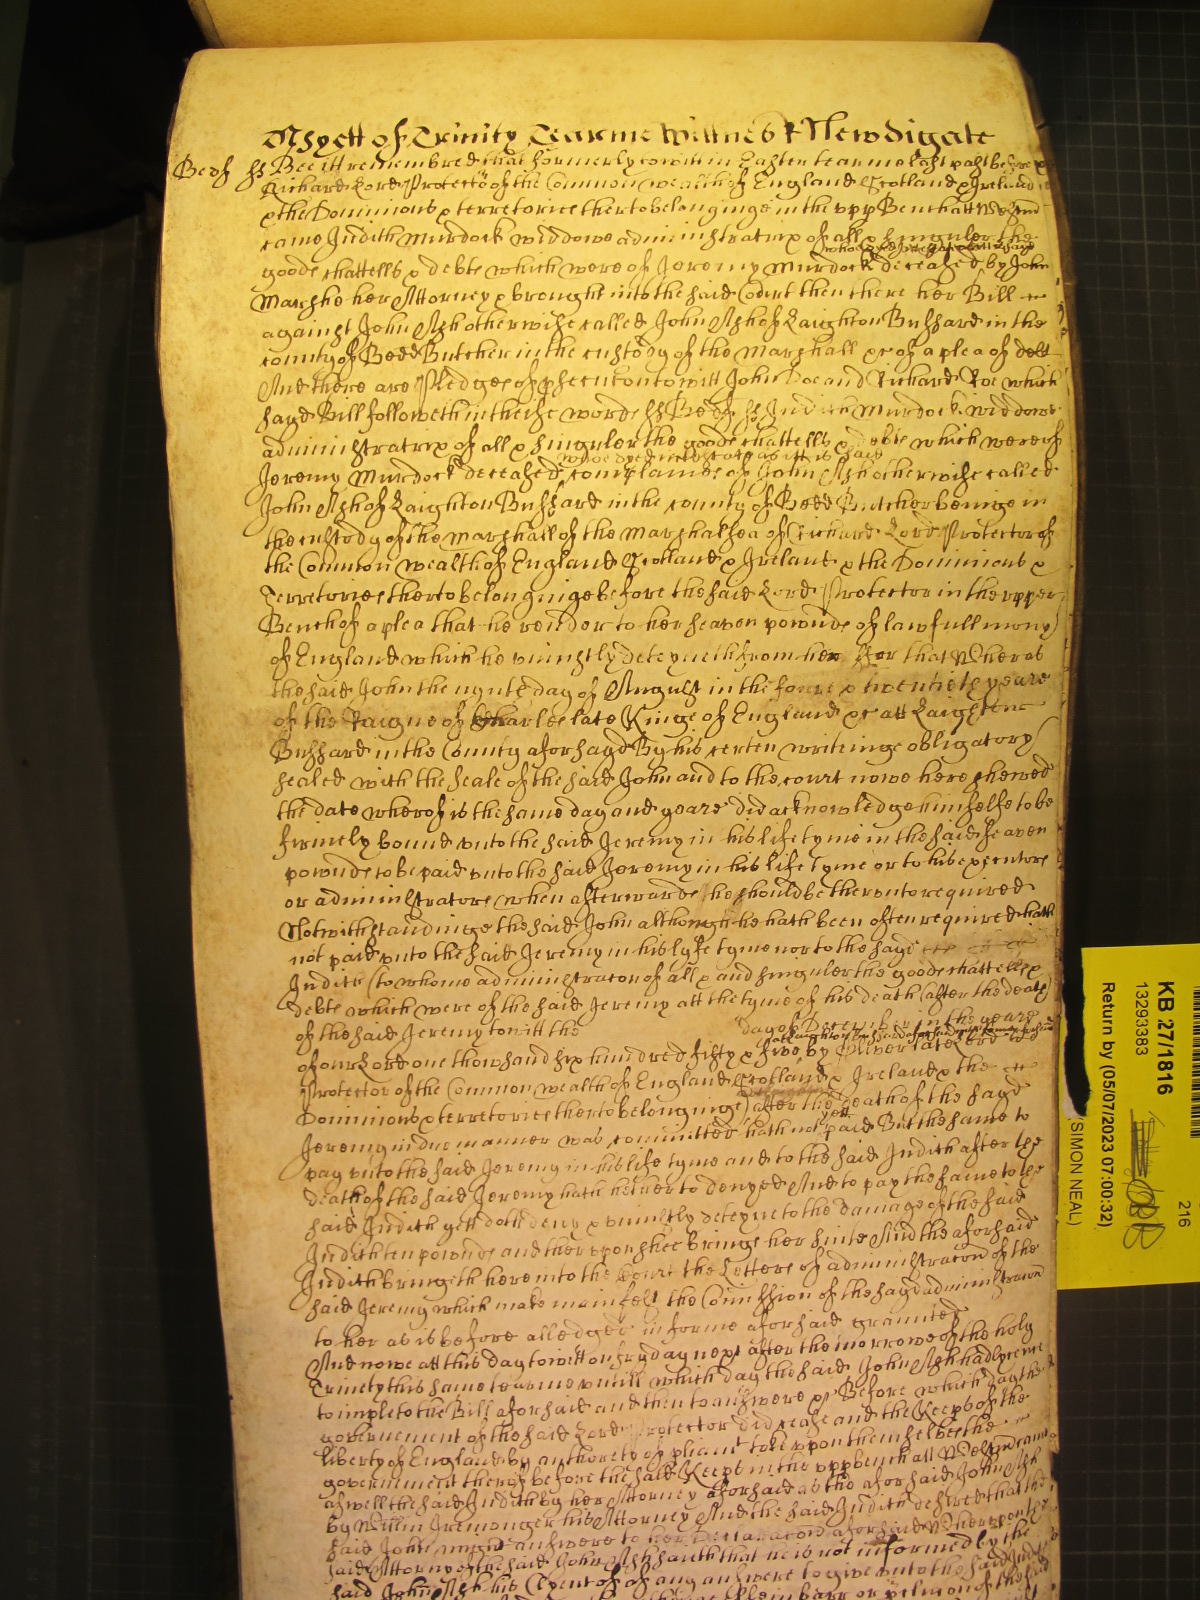 As yett of Trinity Tearme Wittnes R Newdigate
Bedf ss Bee itt remembred that formerly towitt in Easter tearme last past before
Richard Lord Protector of the Common wealth of England Scotland & Ireland
& the Dominions & terretories therto belonginge in the upp Bench att Westm
came Judith Murdock widdowe administratrix of all & singuler the
goods chattells & debts which were of Jeremy Murdock deceased by John
Marshe her Attorney & brought into the said Court then there her Bill
against John Ash otherwise called John Ash of Laighton Bussard in the
county of Bedd Butcher in the custody of the Marshall &c of a plea of debt
And there are Pledges of psecucon towitt John Doe and Richard Roe which
sayd Bill followeth in theise words ss Bedf ss Judith Murdock widdowe
administratrix of all & singuler the goods chattells & debts which were of
whoe dyed intestate as itt is said
Jeremy Murdock deceased complaines of John Ash otherwise called
John Ash of Laighton Bussard in the county of Bedd Butcher beinge in
the custody of the Marshall of the Marshalsea of Richard Lord Protector of
the Common wealth of England Scotland & Ireland & the Dominions &
Terretories therto belonginge before the said Lord Protector in the upper
Bench of a plea that he render to her seaven pownds of lawfull mony
of England which he uniustly deteyneth from her For that Wheras
the said John the nynte day of August in the foure & twentieth yeare
of the Raigne of Charles late Kinge of England &c att Laighton
Bussard in the County aforsayd By his certen writeinge obligatory
sealed with the seale of the said John and to the court nowe here shewed
the date wherof is the same day and yeare did acknowledge himselfe to be
firmely bound unto the said Jeremy in his life tyme in the said seaven
pownds to be paid unto the said Jeremy in his life tyme or to his executors
or administrators when afterwards he should be therunto required
Notwithstandinge the said John although he hath been often required hath
not paid unto the said Jeremy in his lyfe tyme nor to the sayd
Judith (to whome administracon of all & and singuler the goods chattells &
debts which were of the said Jeremy att the tyme of his death (after the death)
of the said Jeremy towitt the day of December in the yeare
of our Lord one thowsand six hundred fifty & five by Oliver late Lord
Protector of the Common wealth of England Scotland & Ireland & the
Dominions & terretories therto belonginge) after the death of the sayd
yett
Jeremy in due manner was committed hath not paid But the same to
pay unto the said Jeremy in his life tyme and to the said Judith after the
death of the said Jeremy hath hetherto denyed And to pay the same to the
said Judith yett doth deny & uniustly deteyne to the damage of the said
Judith ten pownds and therupon shee brings her suite And the aforsaid
Judith bringeth here into the Court the Letters of administracon of the
said Jeremy which make manifest the Comission of the sayd administracon
to her as is before alledged in forme aforsaid graunted
And nowe att this day towitt on fryday next after the morrowe of the holy
Trinety this same tearme untill which day the said John Ash had lycence
to imple to the Bill aforsaid and then to answere &c Before which day the
governement of the said Lord Protector did cease and the Keeps of the
liberty of England by authorety of pliamt toke upon themselves the
government therof before the said Keeps in the upp bench att Westm came
aswell the said Judith by her Attorney aforsaid as the aforsaid John Ash
by Willm Iremonger his Attorney And the said Judith desired that the
said John might answere to her Declaracon aforsaid Wherupon the
said Attorny of the said John Ash saith that he is not informed by the
said John Ash his Clyent of any answere to give unto the said Judith
KB 27/1816
13293383
Return by (05/07/2023 07:00:32)
(SIMON NEAL)
216